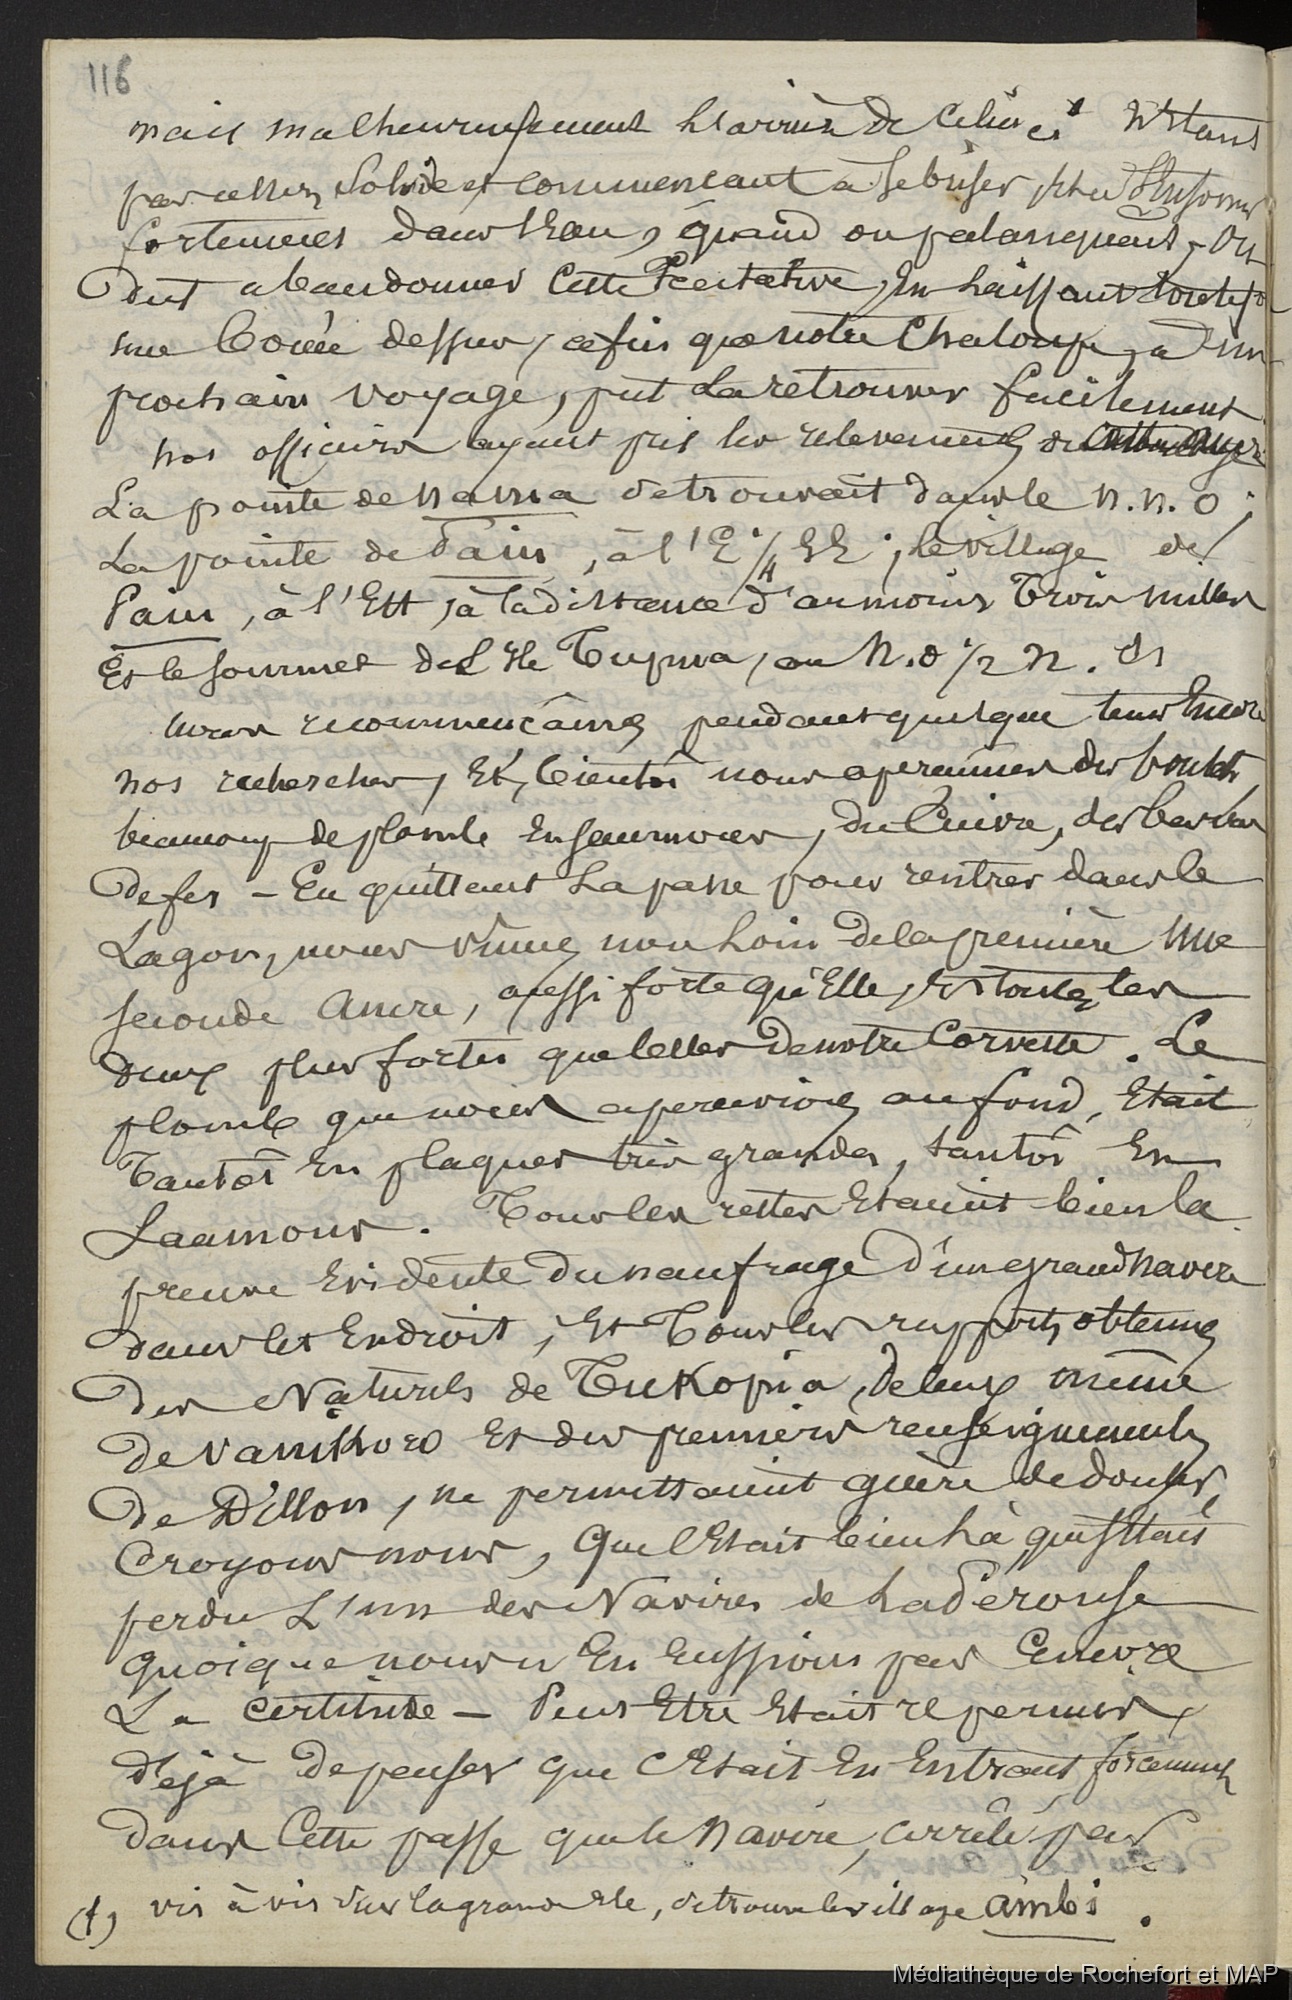 116
mais malheureusement l'arrière de celui ci N'Etant
pas assez solide et commencant à se briser, Et à s'Enfoncer
fortement dans l'Eau, quand on palanquait, On
dut abandonner cette tentative, En laissant toutefois
une bouée dessus, afin que notre chaloupe, a un
prochain voyage, put la retrouver facilement
nos officiers ayant pris les relevements de
La pointe de nama se trouvait dans le n.n.o ;
La pointe de Païu, à l'E 1/4 SE ; le village de
Païu, à l'Est, à la distance d'aumoins trois milles
Et le sommet de L'Ile Tupua, au N.o 1/2 N.
nous recommencâmes pendant quelque tems Encore
nos recherches, Et, bientôt nous aperçumes des boulets
beaucoup de plomb En saumons, du Cuivre, des barres
de fer - En quittant la passe pour rentrer dans le
Lagon, nous vîmes non loin de la première une
seconde ancre, aussi forte qu'Elle, Et toutes les
deux plus fortes que celles de notre Corvette. Le
plomb que nous apercevions au fond, Etait
Tantôt En plaques très grandes, tantôt En
Saumons. Tous les restes Etaient bien la
preuve Evidente du naufrage d'un grand navire
dans cet Endroit, Et Tous les rapports obtenus
des Naturels de Tukopia, de ceux même
de Vanikoro Et des premiers renseignements
De Dillon, ne permettaient guère de douter,
Croyons nous, que c'Etait bien là, que s'Etait
perdu L'un des Navires de LaPérouse
quoique nous n'En Eussions pas Encore
La certitude - Peut Etre Etait il permis,
déjà de penser que c'Etait En Entrant forcement
dans cette passe que le navire, arrêté par
(1) vis à vis sur la grande Ile, se trouve le village ambi.
Médiathèque de Rochefort et MAP